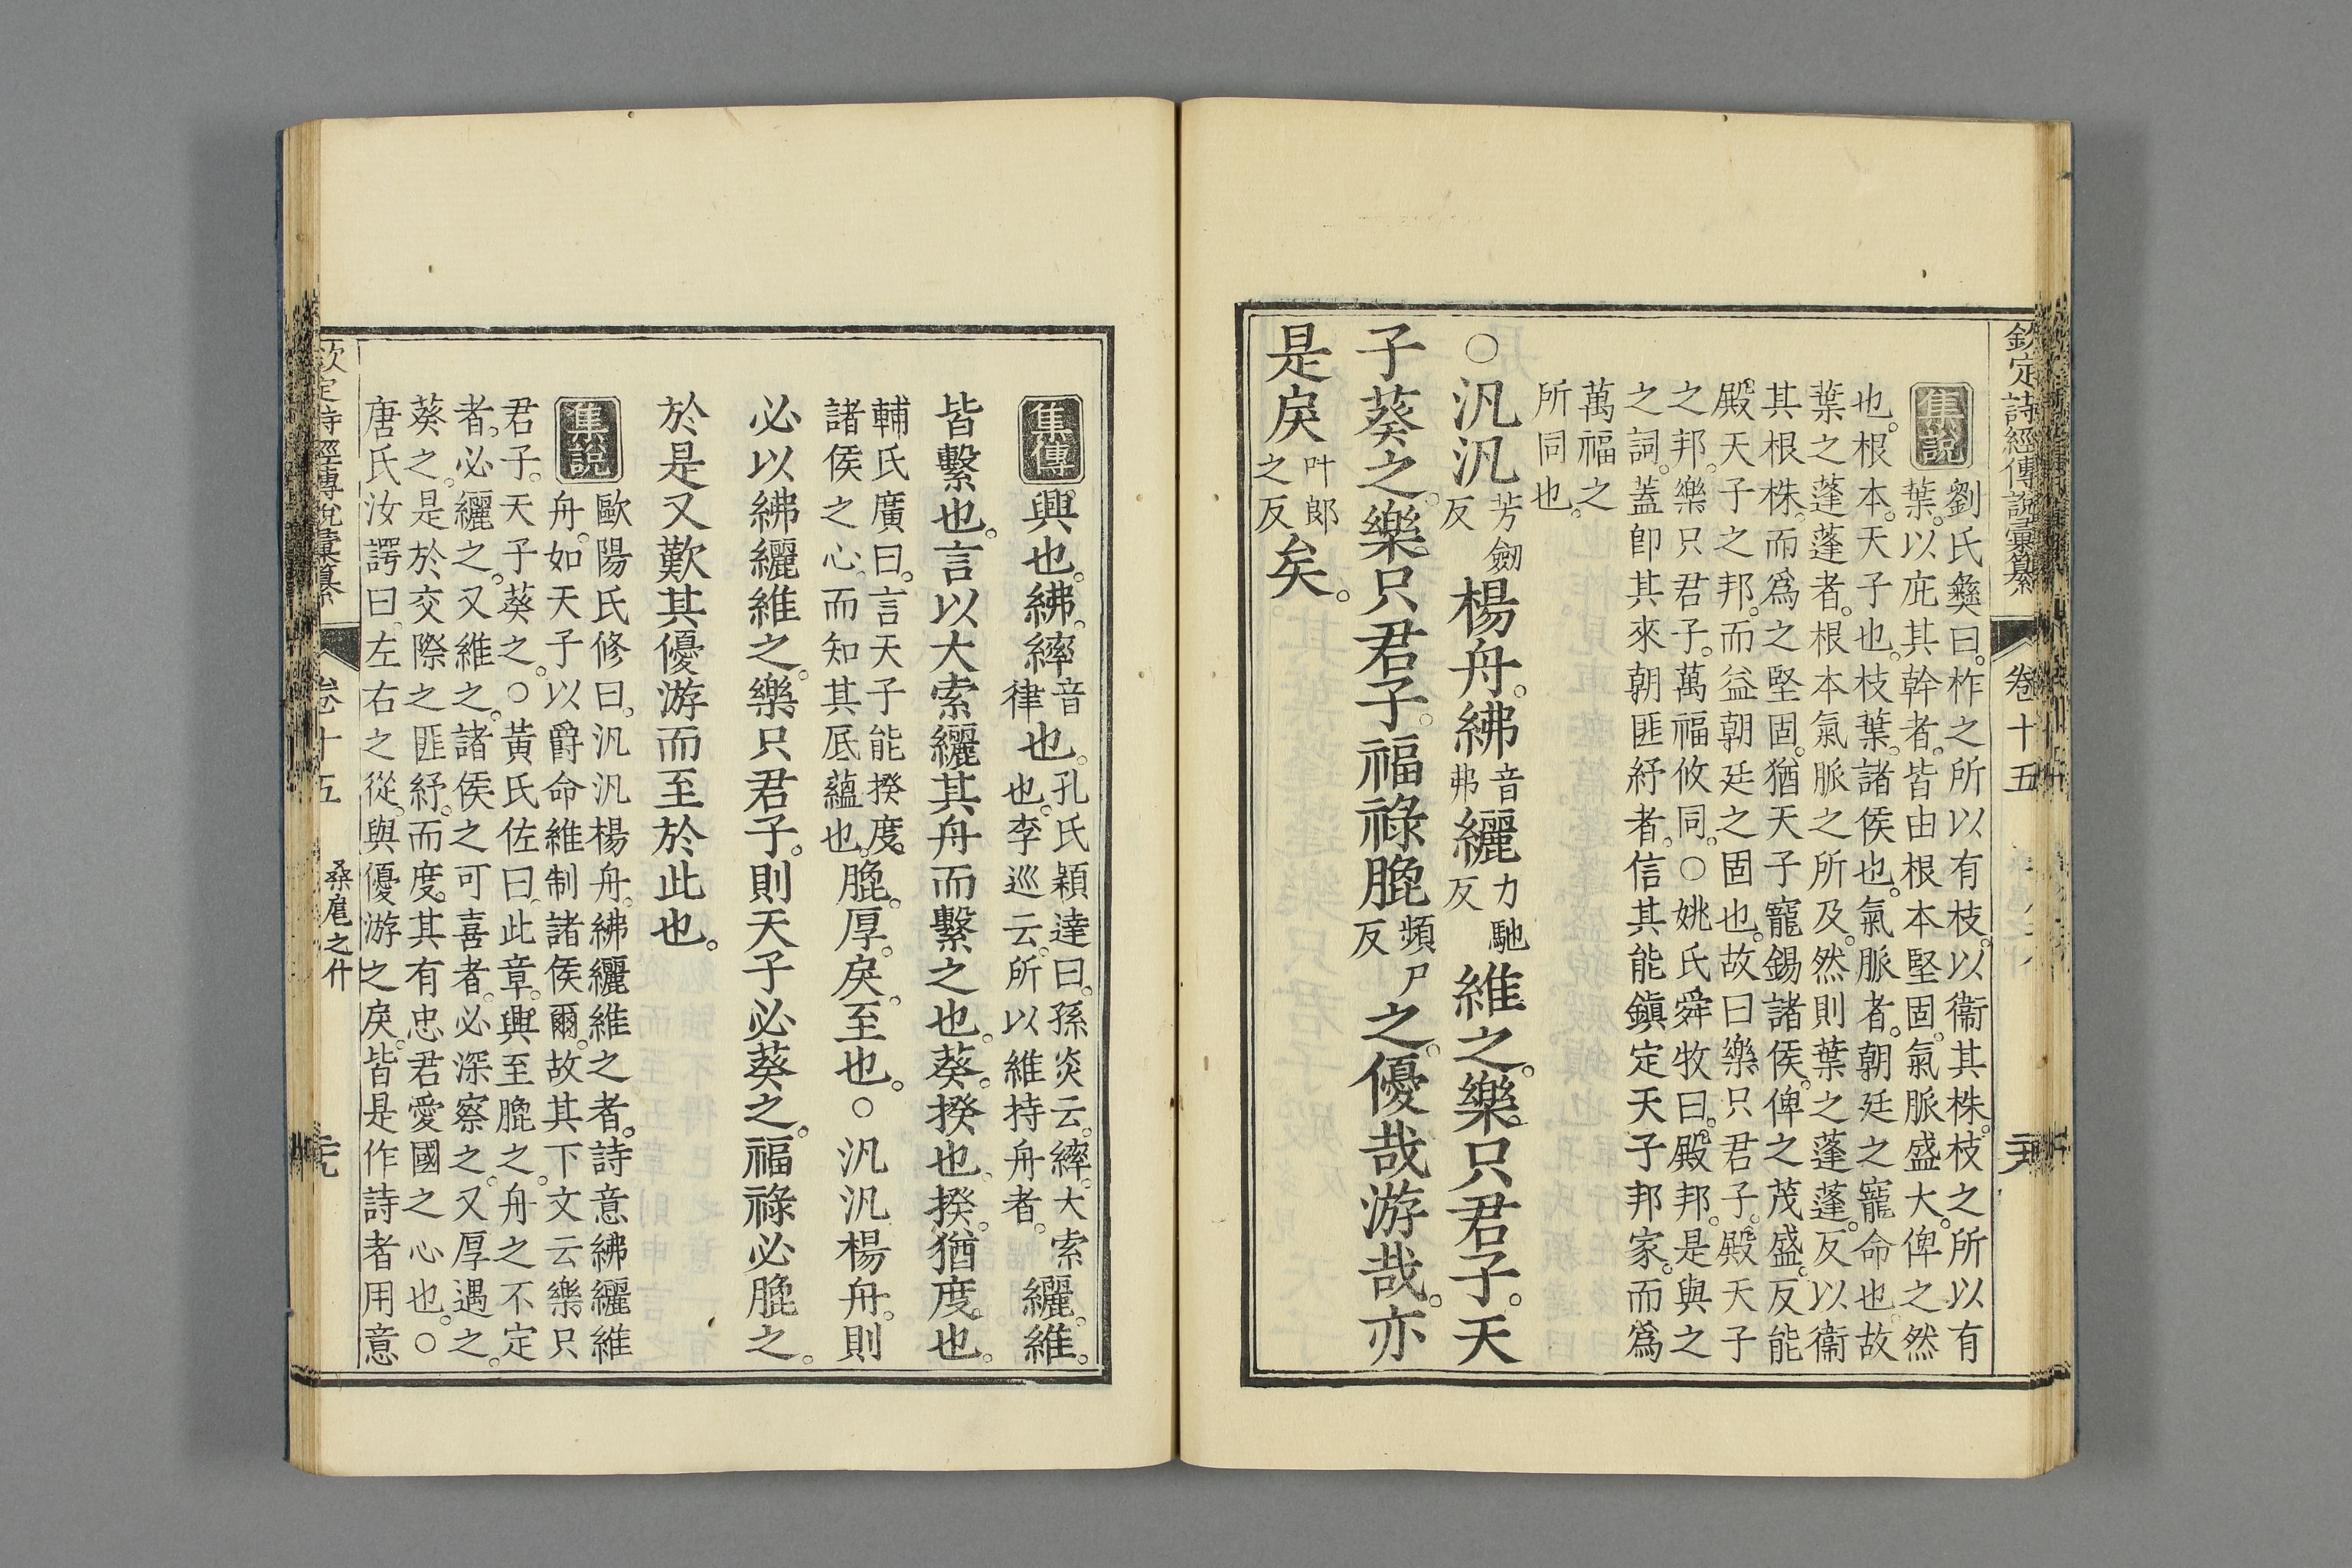 欽定詩經傳說彙纂 卷十五
集說 劉氏彝曰。柞之所以有枝。以衞其株。枝之所以有
葉。以庇其幹者。皆由根本堅固。氣脈盛大。俾之然
也。根本。天子也。枝葉。諸侯也。氣脈者。朝廷之寵命也。故
葉之蓬蓬者。根本氣脈之所及。然則葉之蓬蓬。反以衞
其根株。而爲之堅固。猶天子寵錫諸侯。俾之茂盛。反能
殿天子之邦。而益朝廷之固也。故曰樂只君子。殿天子
之邦。樂只君子。萬福攸同。○姚氏舜牧曰。殿邦。是與之
之詞。蓋卽其來朝匪紓者。信其能鎭定天子邦家。而爲
萬福之
所同也。
○汎汎芳劒反楊舟。紼音弗纚力馳反維之。樂只君子。天
子葵之。樂只君子。福祿膍頻尸反之。優哉游哉。亦
是戾叶郎之反矣。
集傳 興也。紼。繂音律也。孔氏穎達曰。孫炎云。繂。大索也。李巡云。所以維持舟者。纚。維。
皆繫也。言以大索纚其舟而繫之也。葵。揆也。揆。猶度也。
輔氏廣曰。言天子能揆度諸侯之心。而知其底蘊也。膍。厚。戾。至也。○汎汎楊舟。則
必以紼纚維之。樂只君子。則天子必葵之。福祿必膍之。
於是又歎其優游而至於此也。
集說 歐陽氏修曰。汎汎楊舟。紼纚維之者。詩意紼纚維
舟。如天子以爵命維制諸侯爾。故其下文云樂只
君子。天子葵之。○黃氏佐曰。此章。興至膍之。舟之不定
者。必纚之。又維之。諸侯之可喜者。必深察之。又厚遇之。
葵之。是於交際之匪紓。而度其有忠君愛國之心也。○
唐氏汝諤曰。左右之從。與優游之戾。皆是作詩者用意
欽定詩經傳說彙纂 卷十五 桑扈之什